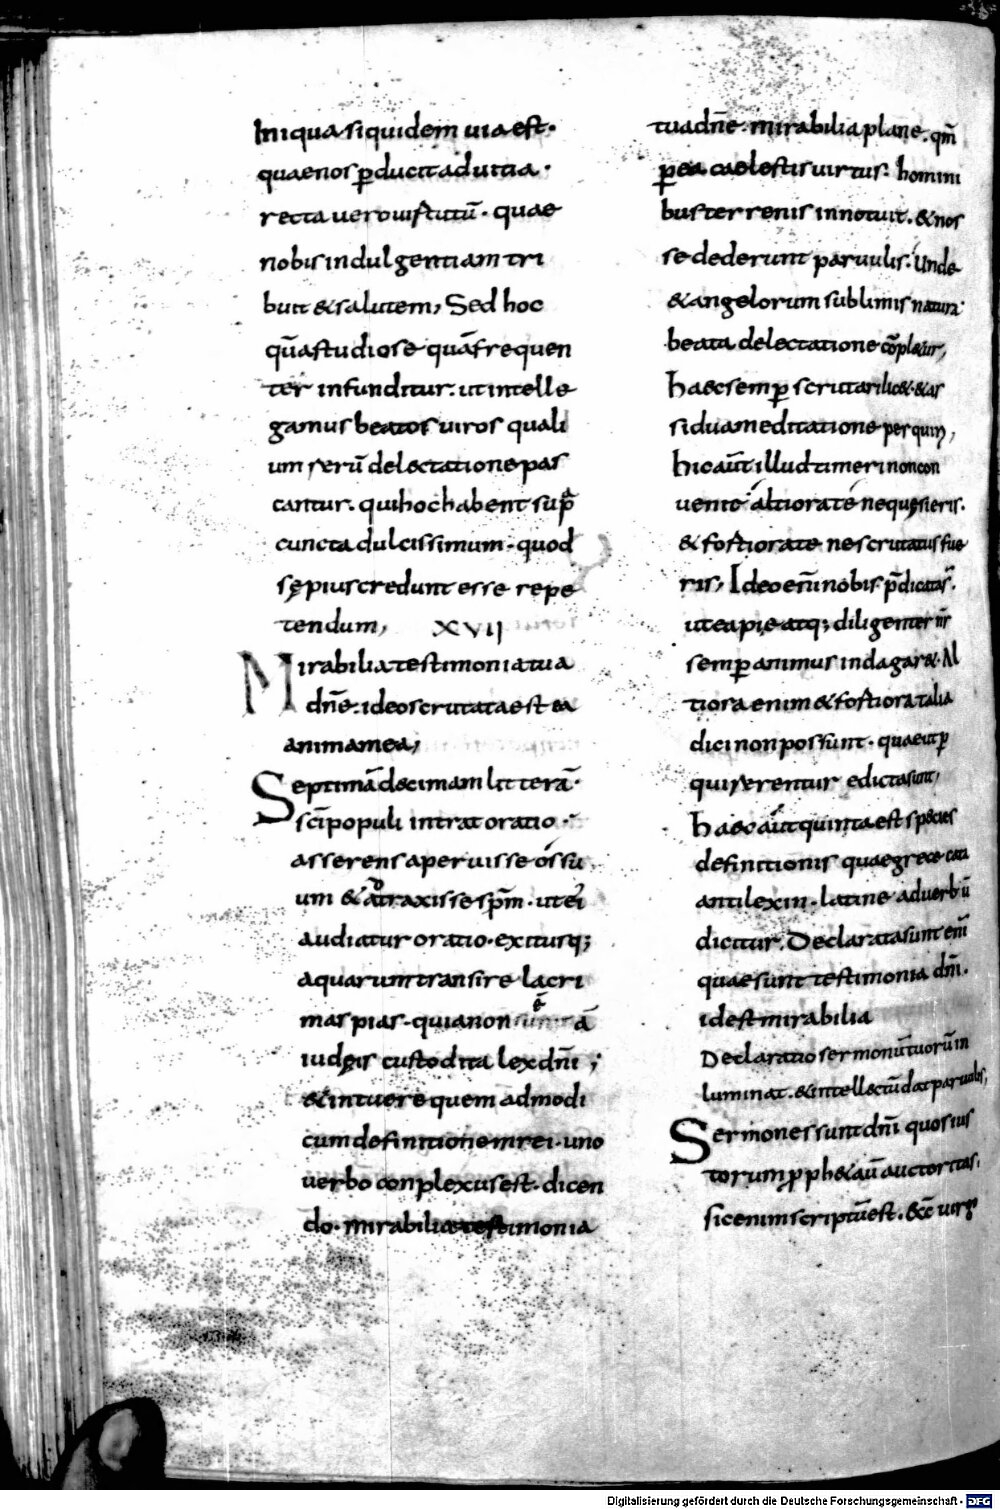 Iniqua siquidem uia est·
quae nos p̄ducit ad uitia·
recta uero uirtutū· quae
nobis indulgentiam tri
buit & salutem; Sed hoc
quā studiose quā frequen
ter infunditur: ut intelle
gamus beatos uiros quali
um rerū delectatione pas
cantur· qui hoc habent sup̄
cuncta dulcissimum· quod
sępius credunt esse repe
tendum; XVII
Mirabilia testimonia tua
dn̄e: ideo scrutata est ea
anima mea;
Septimā decimam litterā·
sc̄i populi intrat oratio·
asserens aperuisse os su
um & atraxisse sp̄m· ut ei
audiatur oratio· exitusq;
aquarum transire lacri
mas pias· quia non ā
iudęis custodita lex dn̄i;
& intuere quem admodi
cum definitionem rei· uno
uerbo conplexus est· dicen
do· mirabilia testimonia
tua dn̄e: mirabilia plane· qm̄
p̄ ea caelestis uirtus: homini
bus terrenis innotuit· & nos
se dederunt paruulis· Unde
& angelorum sublimis natura
beata delectatione cōpl&ur;
haec semp̄ scrutari lic& & as
sidua meditatione perquiri;
hic aūt illud timeri non con
uenit altiora te ne quęsieris·
& fortiora te ne scrutatus fue
ris; Ideo enī nobis p̄dicatas·
ut ea pie atq; diligenter nr̄
semp̄ animus indagar&· Al
tiora enim & fortiora talia
dici non possunt· quae ut p̄
quirerentur edicta sunt;
haec aūt quinta est species
definitionis quae grece cata
antilexin· latine ad uerbū
dicitur· Declarata sunt enī
quae sunt testimonia dn̄i·
id est mirabilia
Declaratio sermonū tuorū in
luminat· & intellectū dat paruulis;
Sermones sunt dn̄i quos ius
torum p̄ph&aū auctoritas·
sic enim scriptū est· &cc uirgo